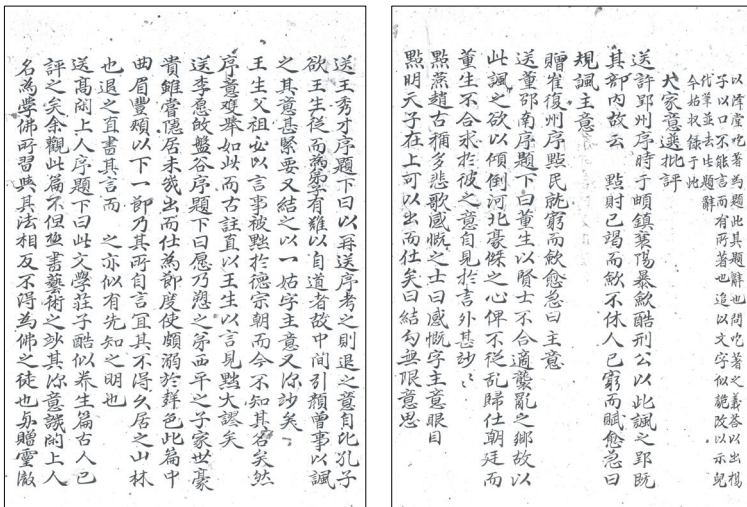 以陣堂吃著為題此其題辭也問吃著之義答以出楊
子以口不能言而有所著也追以文字似詭改以示兒
代筆並去此題辭
今始収録于此
大家意選批評
送許郢州序時于頔鎮襄陽暴歛酷刑公以此諷之郢既
其部内故云　點財已竭而歛不休人已窮而賦愈急曰
規諷主意
贈崔復州序點民就窮而歛愈急曰主意
送董邵南序題下曰董生以賢士不合適襲亂之鄉故以
此諷之欲以傾倒河北豪傑之心俾不從乱歸仕朝廷而
董生不合求於彼之意自見於言外甚妙〻
點燕趙古稱多悲歌感慨之士曰感慨字主意眼目
點明天子在上可以出而仕矣曰結勾無限意思
送王秀才序題下曰以再送序考之則退之意自比孔子
欲王生從而為學有難以自道者故中間引顏曾事以諷
之其意甚緊要又結之以一姑字主意又深妙矣
王生父祖必以言事被黜於德宗朝而今不知其名矣然
序意難舉如此而古註直以王生以言見黜大謬矣
送李愿歸盤谷序題下曰愿乃愬之弟西平之子家世豪
貴雖嘗隠居未幾出而仕為節度使頗溺於聲色此篇中
曲眉豐頰以下一節乃其所自言冝其不得久居之山林
也退之直書其言而　之亦似有先知之明也
送高閑上人序題下曰此文學莊子酷似养生篇古人已
評之矣余觀此篇不但極書藝術之妙其深意譏閑上人
名為學佛所習與其法相反不得為佛之徒也亦贈靈徹